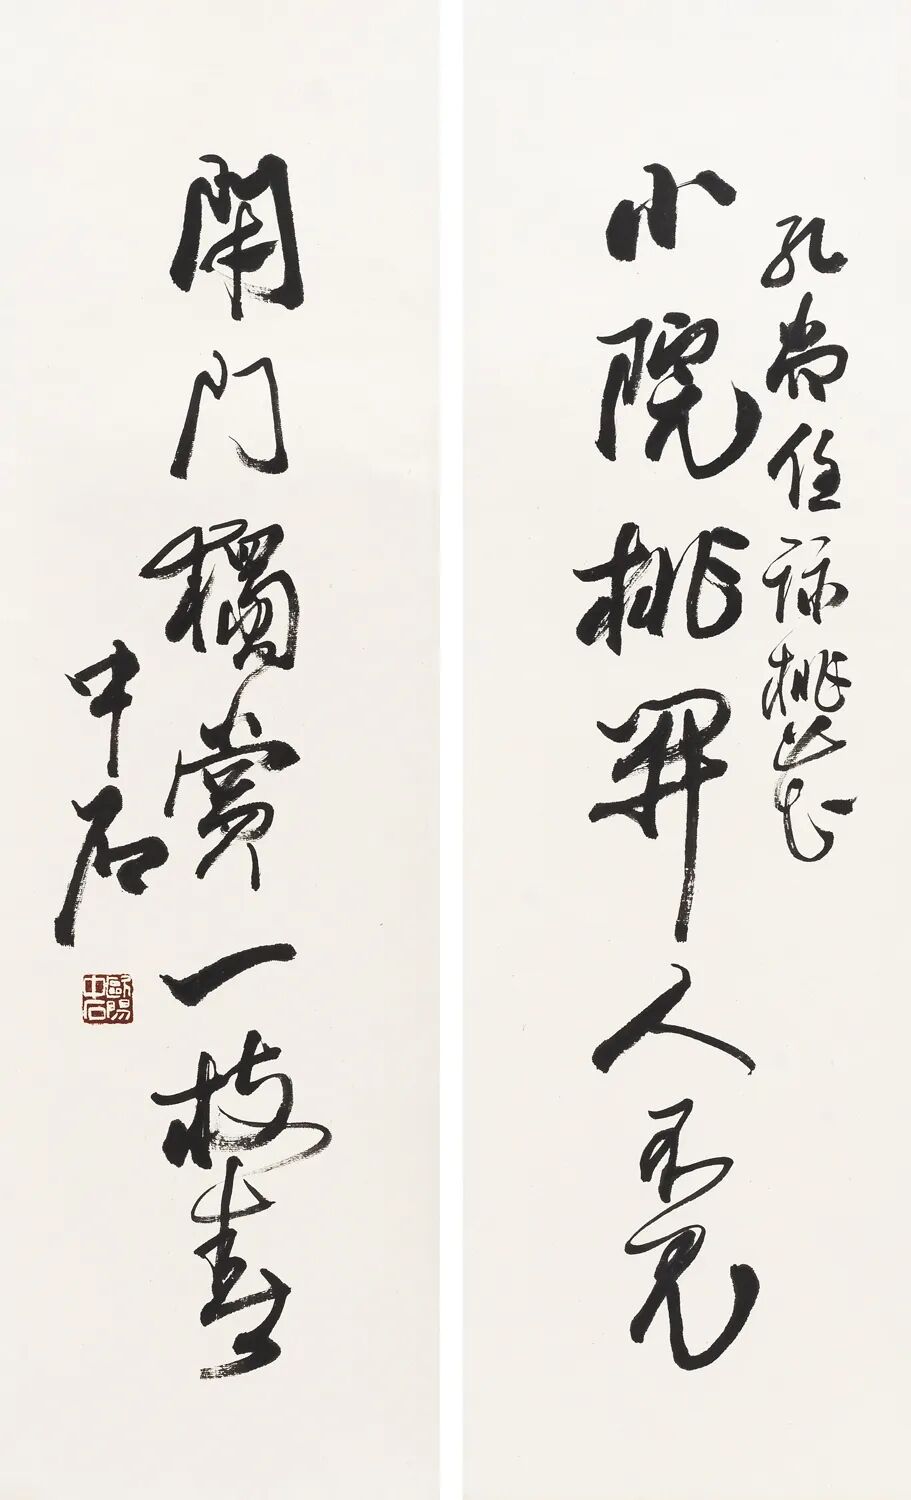 孔尚任詠桃花
小院桃開人不見
閑門獨賞一枝春
中石
歐陽中石